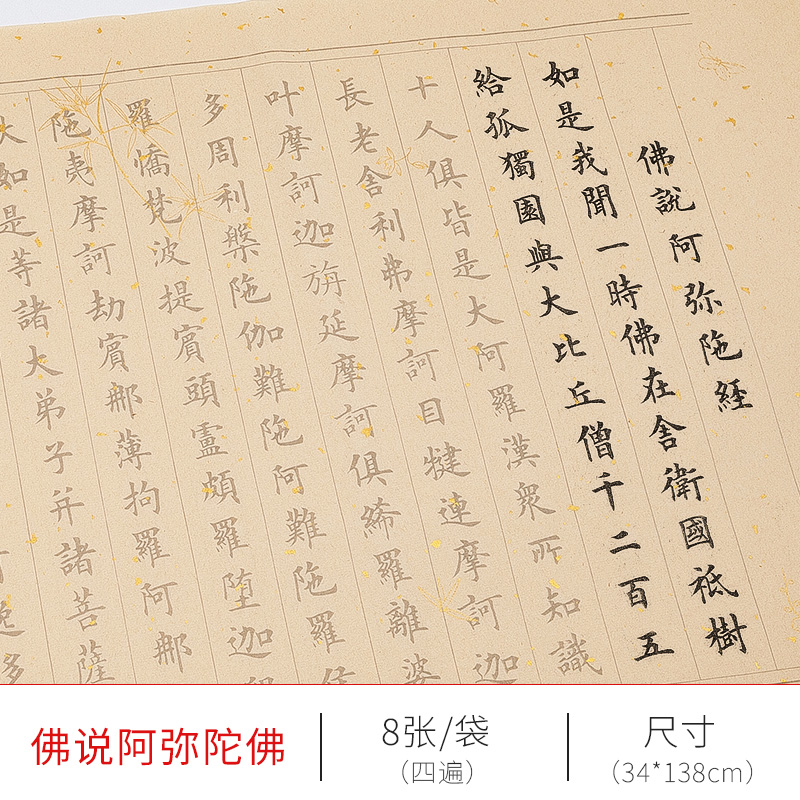 佛說阿弥陁經
如是我聞一時佛在舍衛國祇樹
給孤獨園與大比丘僧千二百五
十人俱皆是大阿羅漢衆所知識
長老舍利弗摩訶目犍連摩訶迦
叶摩訶迦旃延摩訶俱絺羅離婆
多周利槃陁伽難陁阿難陁羅
羅憍梵波提賓頭盧頗羅堕迦
陁夷摩訶劫賓那薄拘羅阿那
大如是等諸大弟子并諸菩薩
佛说阿弥陀佛
8张/袋
(四遍)
尺寸
(34*138cm)